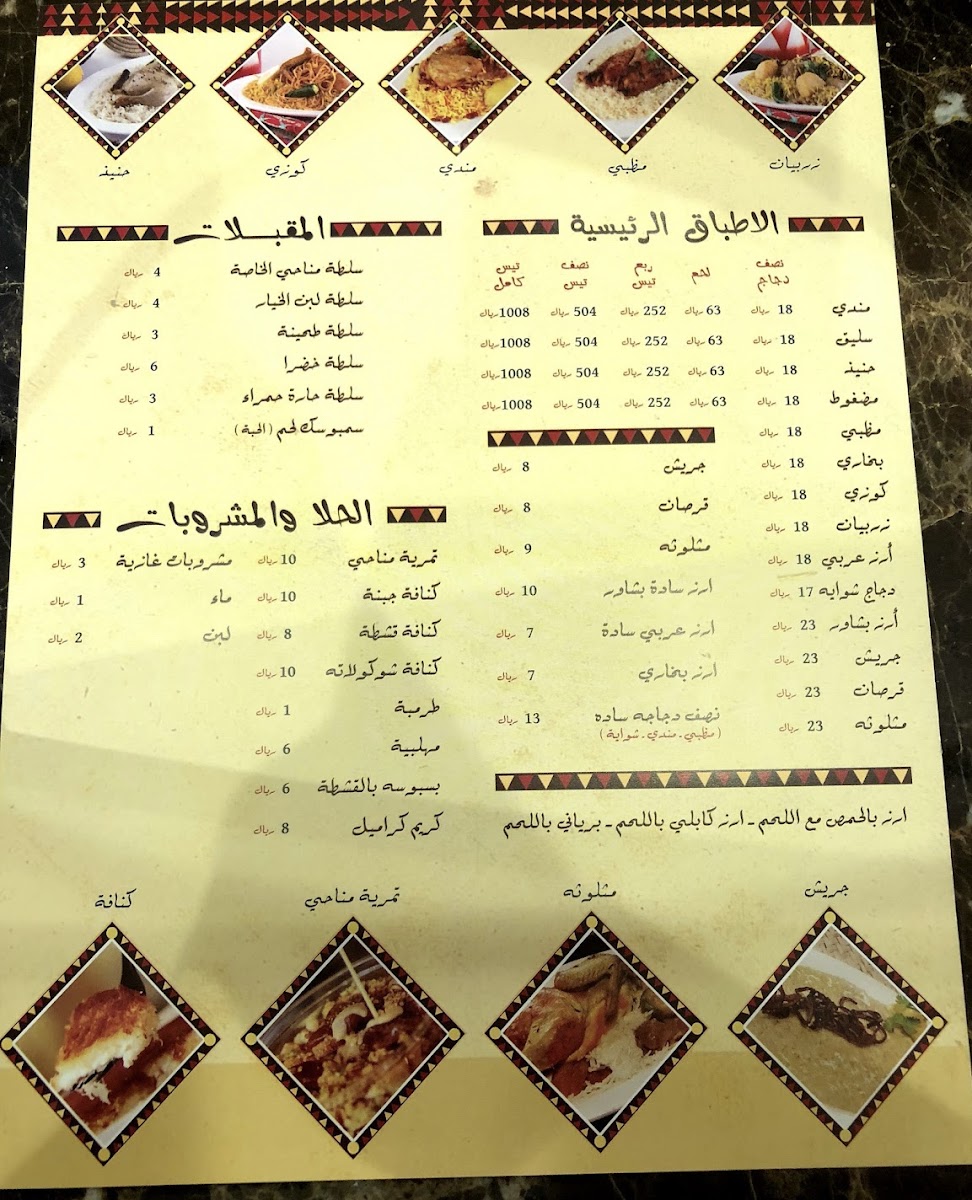 زربيان
مظبي
مندي
كوزي
حنيذ
الاطباق الرئيسية
نصف دجاج لحم ربع تيس نصف تيس تيس كامل
مندي 18 ريال 63 ريال 252 ريال 504 ريال 1008 ريال
سليق 18 ريال 63 ريال 252 ريال 504 ريال 1008 ريال
حنيذ 18 ريال 63 ريال 252 ريال 504 ريال 1008 ريال
مضغوط 18 ريال 63 ريال 252 ريال 504 ريال 1008 ريال
مظبي 18 ريال
بخاري 18 ريال
كوزي 18 ريال
زربيان 18 ريال
أرز عربي 18 ريال
دجاج شوايه 17 ريال
أرز بشاور 23 ريال
جريش 23 ريال
قرصان 23 ريال
مثلوثه 23 ريال
جريش 8 ريال
قرصان 8 ريال
مثلوثه 9 ريال
ارز سادة بشاور 10 ريال
ارز عربي سادة 7 ريال
ارز بخاري 7 ريال
نصف دجاجه ساده 13 ريال
(مظبي - مندي - شواية)
ارز بالحمص مع اللحم - ارز كابلي باللحم - برياني باللحم
المقبلات
سلطة مناحي الخاصة 4 ريال
سلطة لبن الخيار 4 ريال
سلطة طحينة 3 ريال
سلطة خضرا 6 ريال
سلطة حارة حمراء 3 ريال
سمبوسك لحم (الحبة) 1 ريال
الحلا والمشروبات
تمرية مناحي 10 ريال
كنافة جبنة 10 ريال
كنافة قشطة 8 ريال
كنافة شوكولاته 10 ريال
طرمبة 1 ريال
مهلبية 6 ريال
بسبوسه بالقشطة 6 ريال
كريم كراميل 8 ريال
مشروبات غازية 3 ريال
ماء 1 ريال
لبن 2 ريال
جريش
مثلوثه
تمرية مناحي
كنافة